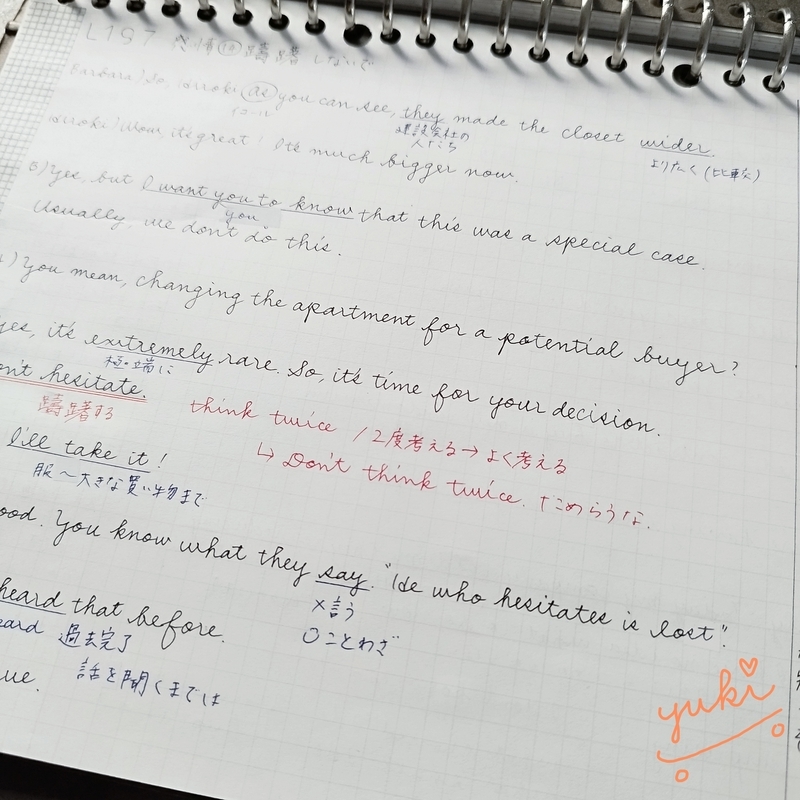 L197 感情⑱ 躊躇しないで
Barbara) So, Hiroki as you can see, they made the closet wider.
建設会社の
人たち
より広く(比較)
Hiroki) Wow, it's great! It's much bigger now.
B) Yes, but I want you to know that this was a special case.
you
Usually, we don't do this.
) You mean, changing the apartment for a potential buyer?
yes, it's extremely rare. So, it's time for your decision.
極端に
on't hesitate.
躊躇する
think twice / 2度考える→よく考える
↳ Don't think twice. ためらうな.
I'll take it!
服〜大きな買い物まで
ood. You know what they say. "He who hesitates is lost".
×言う
○ことわざ
heard that before.
eard 過去完了
話を聞くまでは
ue.
yuki